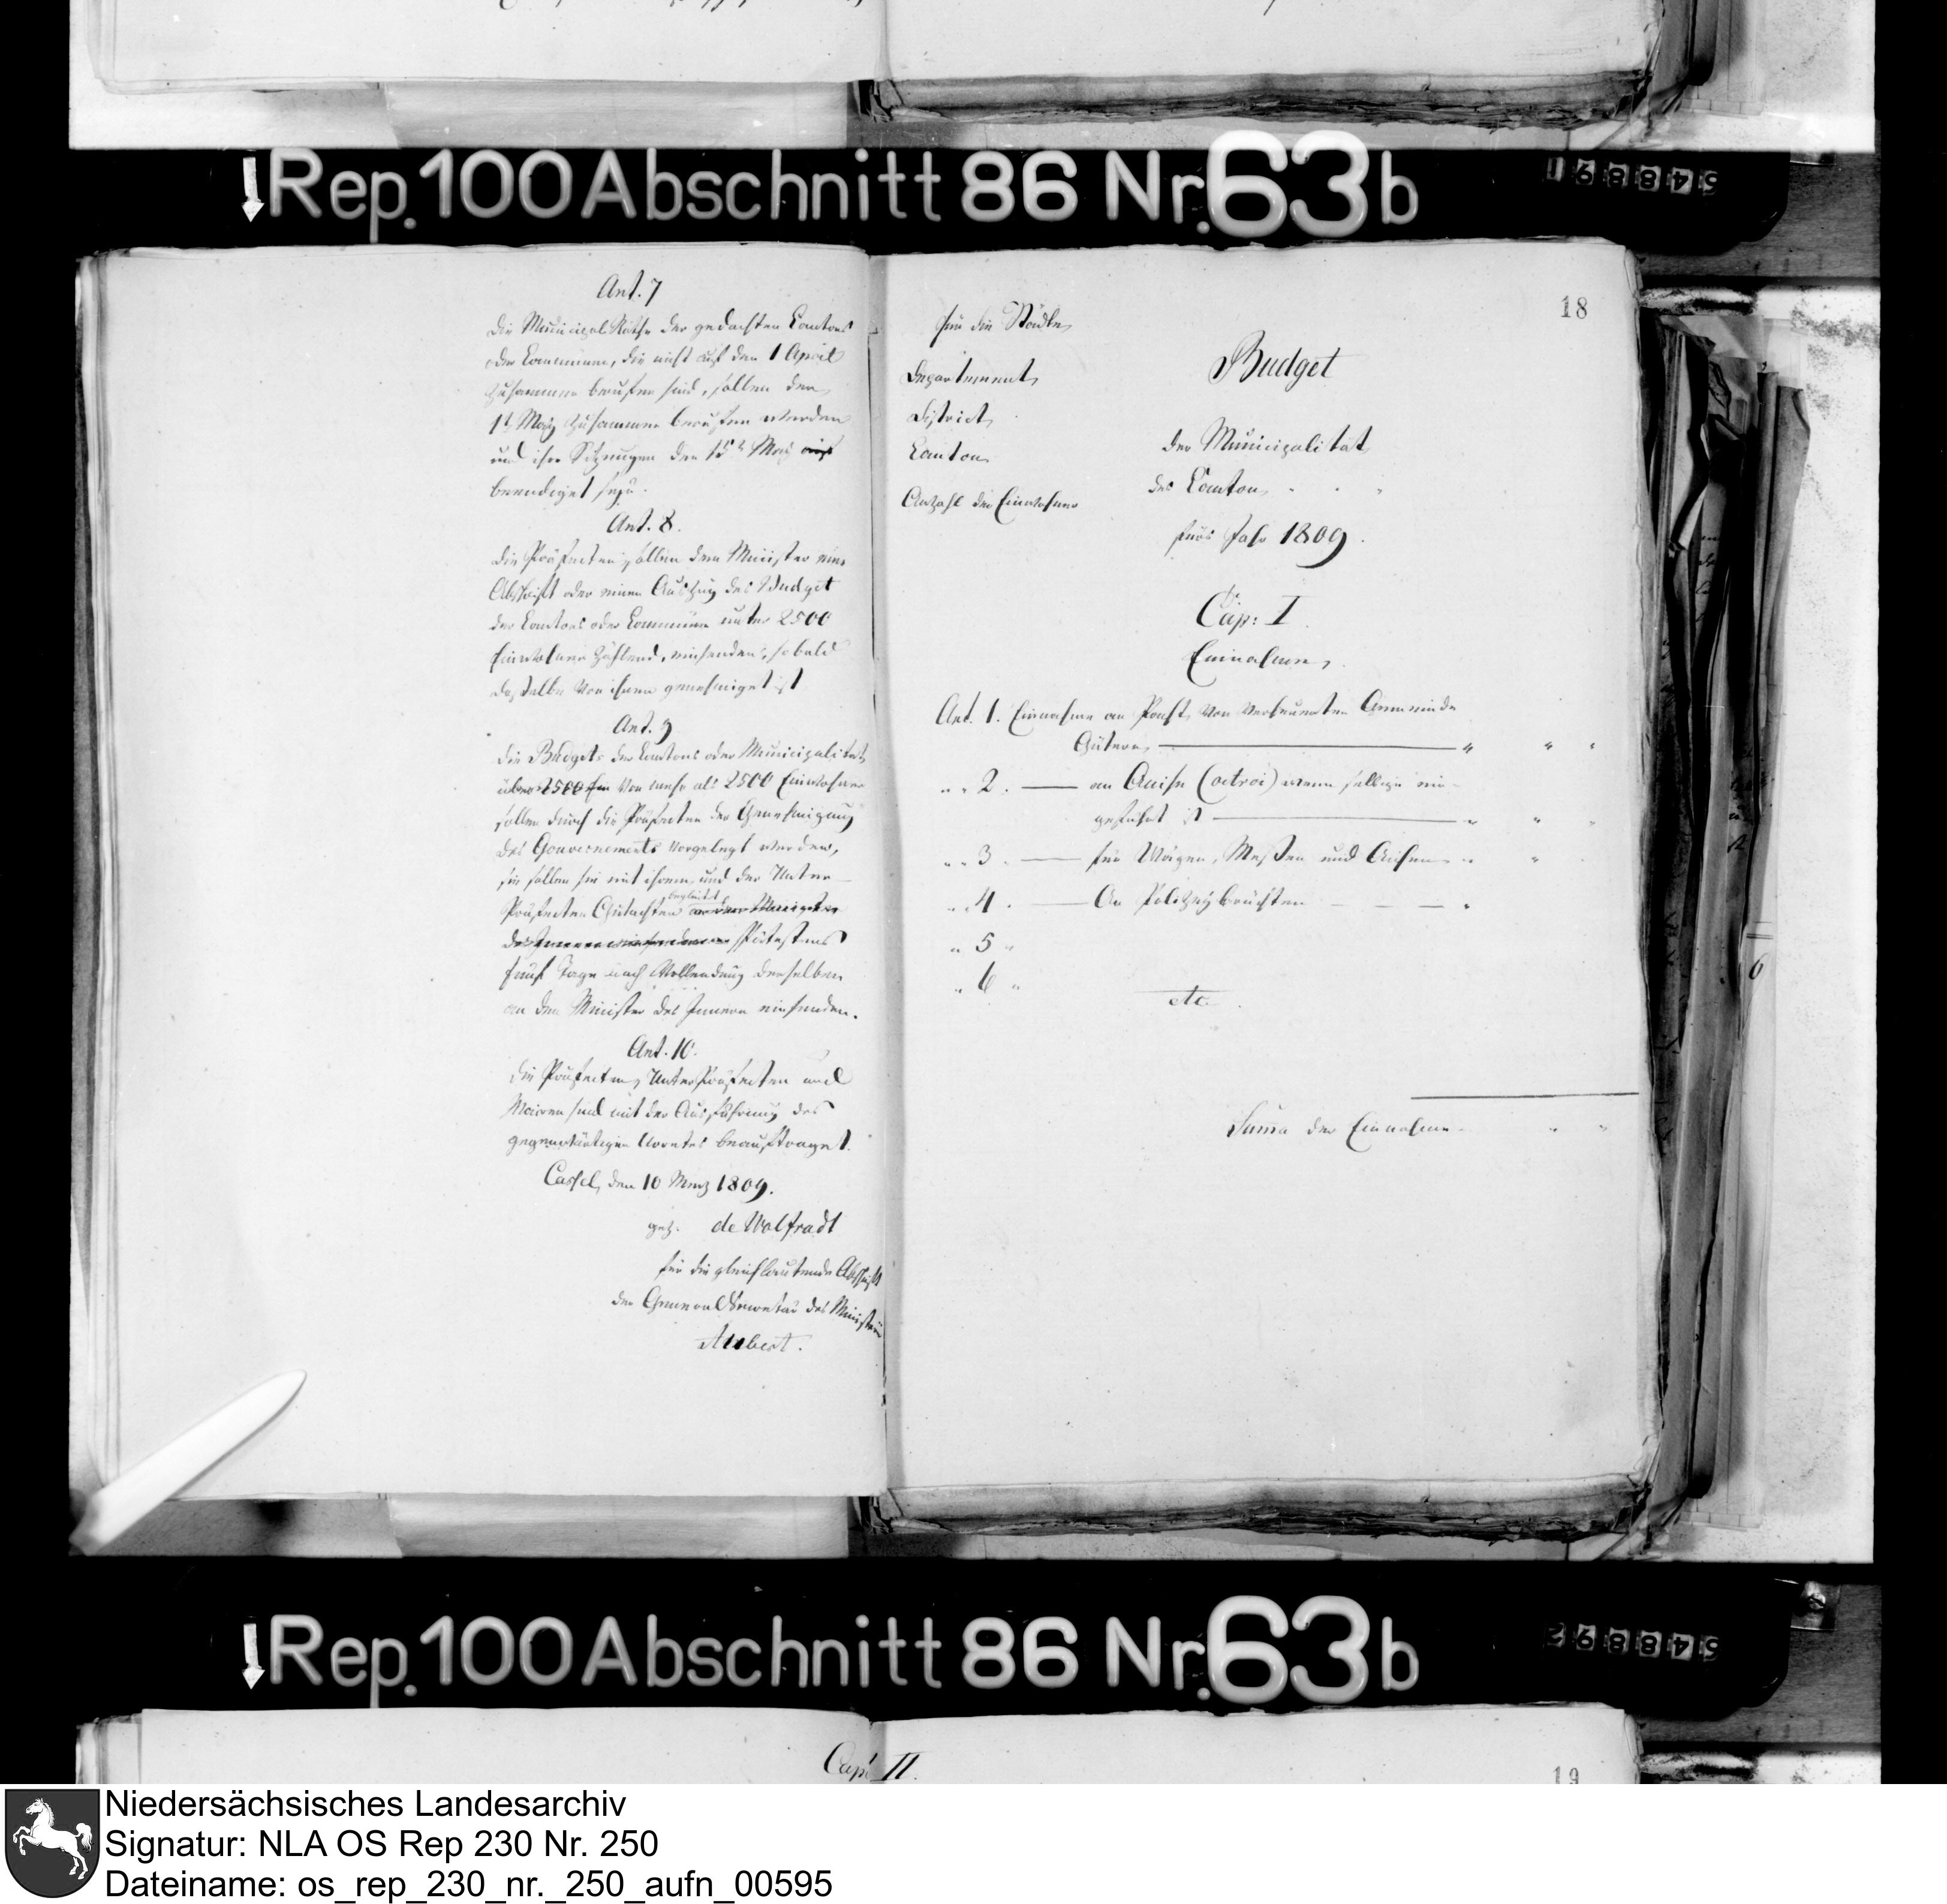 Rep. 100 Abschnitt 86 Nr. 63 b
548891
Art. 7
Die Municipal Räthe der gedachten Cantons
oder Communen, die nicht auf den 1 April
zusammen berufen sind, sollen den
1t May zusammen berufen werden
und ihre Sitzungen den 15t May
beendiget seyn.
Art. 8.
Die Präfecten sollen dem Minister eine
Abschrift oder einen Auszug des Budget
der Cantons oder Communen unter 2500
Einwohner zählend, einsenden, sobald
dasselbe von ihnen genehmiget ist
Art. 9
Die Budgets der Cantons oder Municipalitæt
über 2500 Ein von mehr als 2500 Einwohner
sollen durch die Präfecten der Genehmigung
des Gouvernements vorgelegt werden,
sie sollen sie mit ihrem und der Unter
begleitet
Präfecten Gutachten an den Minister
des Inneren einsenden spätestens
fünf Tage nach Vollendung derselben
an den Minister des Innern einsenden.
Art. 10.
Die Präfecten, Unter Präfecten und
Mairen sind mit der Ausführung des
gegenwärtigen Arretes beauftraget.
Cassel, den 10 Merz 1809.
gez. de Wolfradt
für die gleichlautende Abschrift
der General Secretär des Ministerii
Aubert.
18
für die Städte
Departement
District
Canton
Anzahl der Einwohner
Budget
der Municipalität
des Canton . . "
fürs Jahr 1809.
Cap: I.
Einnahme.
Art. 1. Einnahme an Pacht von verheuerten Gemeinde
Gütern " " "
" " 2. — an Accise (octroi) wenn selbige ein-
geführt ist " " "
" " 3. — für Wägen, Messen und Aichen " "
" 4. — An Polizeybrüchten — — — "
" 5 "
" 6 "
etc.
Suma der Einnahme - " "
Rep. 100 Abschnitt 86 Nr. 63 b
548892
Cap. II.
19
Niedersächsisches Landesarchiv
Signatur: NLA OS Rep 230 Nr. 250
Dateiname: os_rep_230_nr._250_aufn_00595